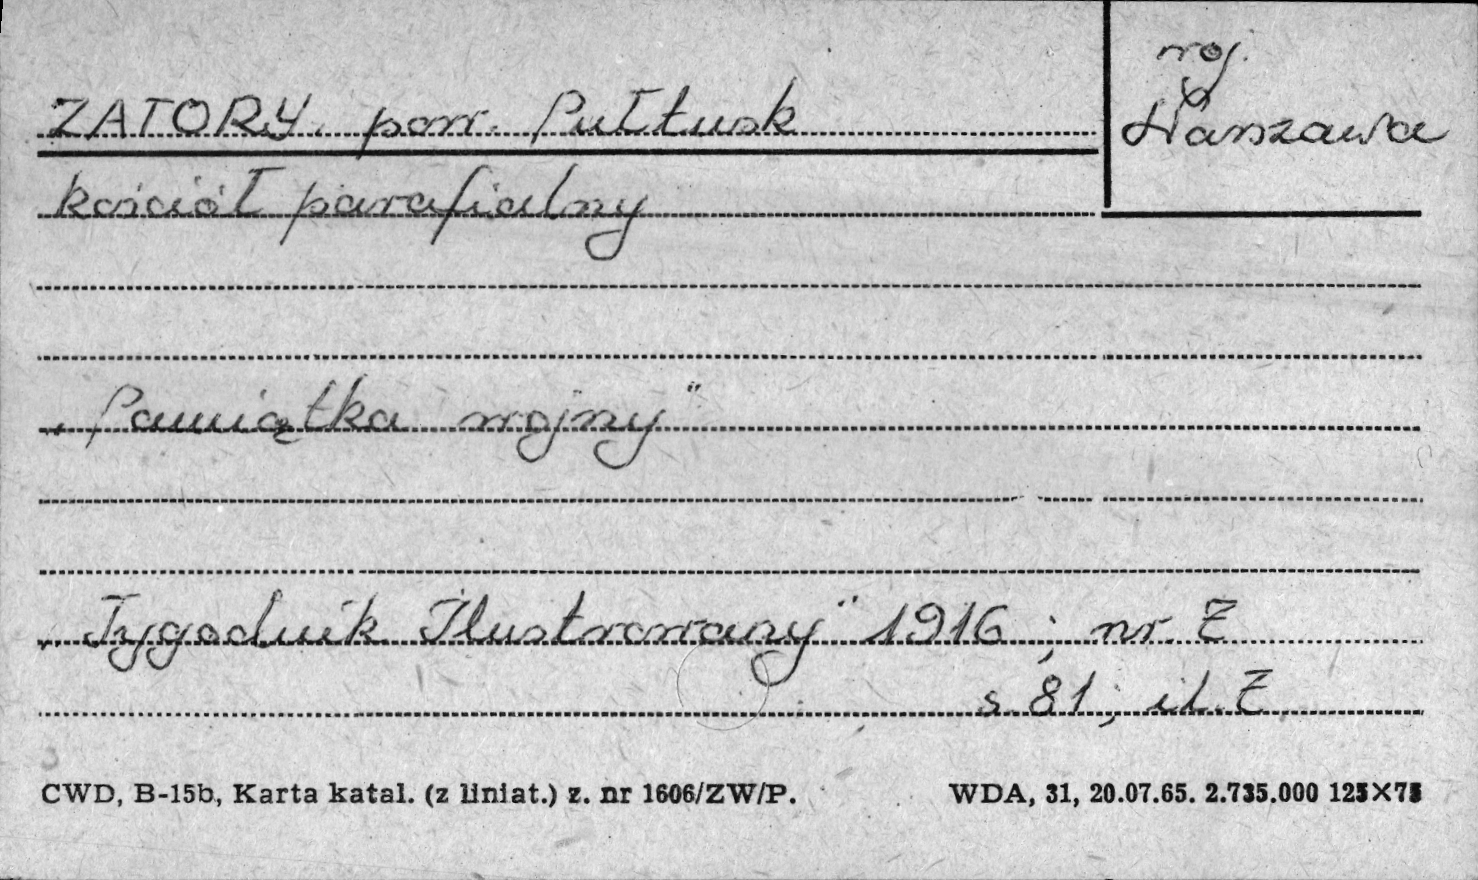 woj.
Warszawa
ZATORY. pow. Pułtusk
kościół parafialny
„Pamiątka wojny"
„Tygodnik Ilustrowany" 1916; nr. 7
s 81, il. 7
CWD, B-15b, Karta katal. (z liniat.) z. nr 1606/ZW/P. WDA, 31, 20.07.65. 2.735.000 125×75